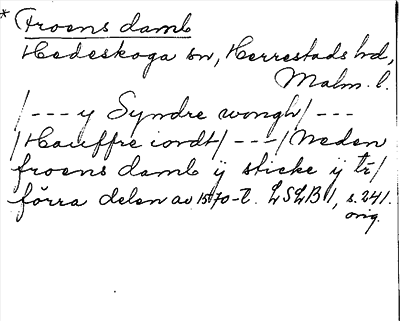 * Froens damb
Hedeskoga sn, Herrestads hd,
Malm. l.
/--- y Syndre wongh/---
/Hauffre iordt/---/Neden
froens damb ÿ sticke ÿ tr/
förra delen av 1570-t. LSLB 1, s. 241.
orig.